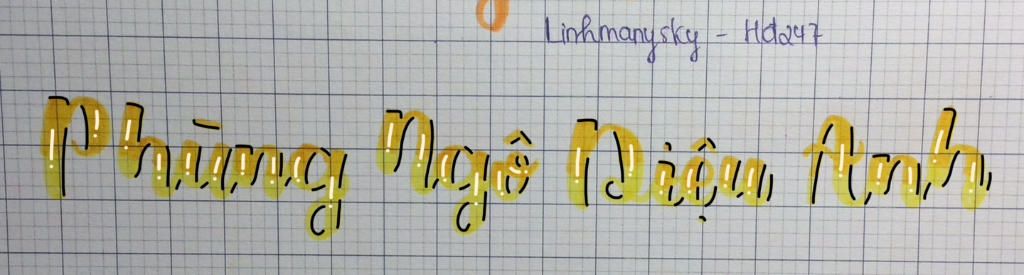 Linhmanysky - Hd247
Phùng Ngô Diệu Anh